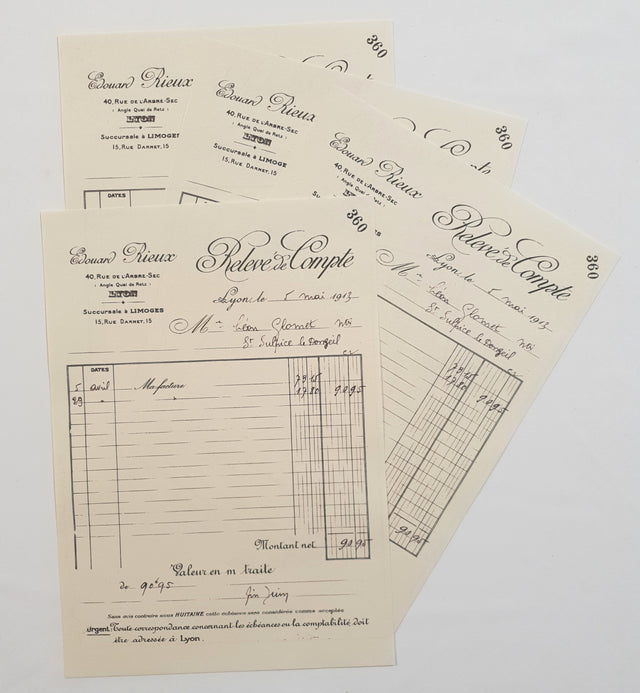 360
Edouard Rieux
40, RUE DE L'ARBRE-SEC
( Angle Quai de Retz )
LYON
Succursale à LIMOGES
15, RUE DARNET, 15
DATES
360
Edouard Rieux
40, RUE DE L'ARBRE-SEC
( Angle Quai de Retz )
LYON
Succursale à LIMOGES
15, RUE DARNET, 15
Edouard Rieux
40, RUE DE L'ARBRE-SEC
360
Relevé de Compte
Lyon, le 5 mai 1913
M
St Sulpice le
90 95
90 95
360
Edouard Rieux
Relevé de Compte
40, RUE DE L'ARBRE-SEC
( Angle Quai de Retz )
LYON
Succursale à LIMOGES
15, RUE DARNET, 15
Lyon, le 5 mai 1913
Mr Léon
St Sulpice le
DATES
5 avril Ma facture
29 " " 90 95
Montant net 90 95
Valeur en m traite
de 90f95 fin Juin
Sans avis contraire sous HUITAINE cette échéance sera considérée comme acceptée
Urgent. Toute correspondance concernant les échéances ou la comptabilité doit
être adressée à Lyon.